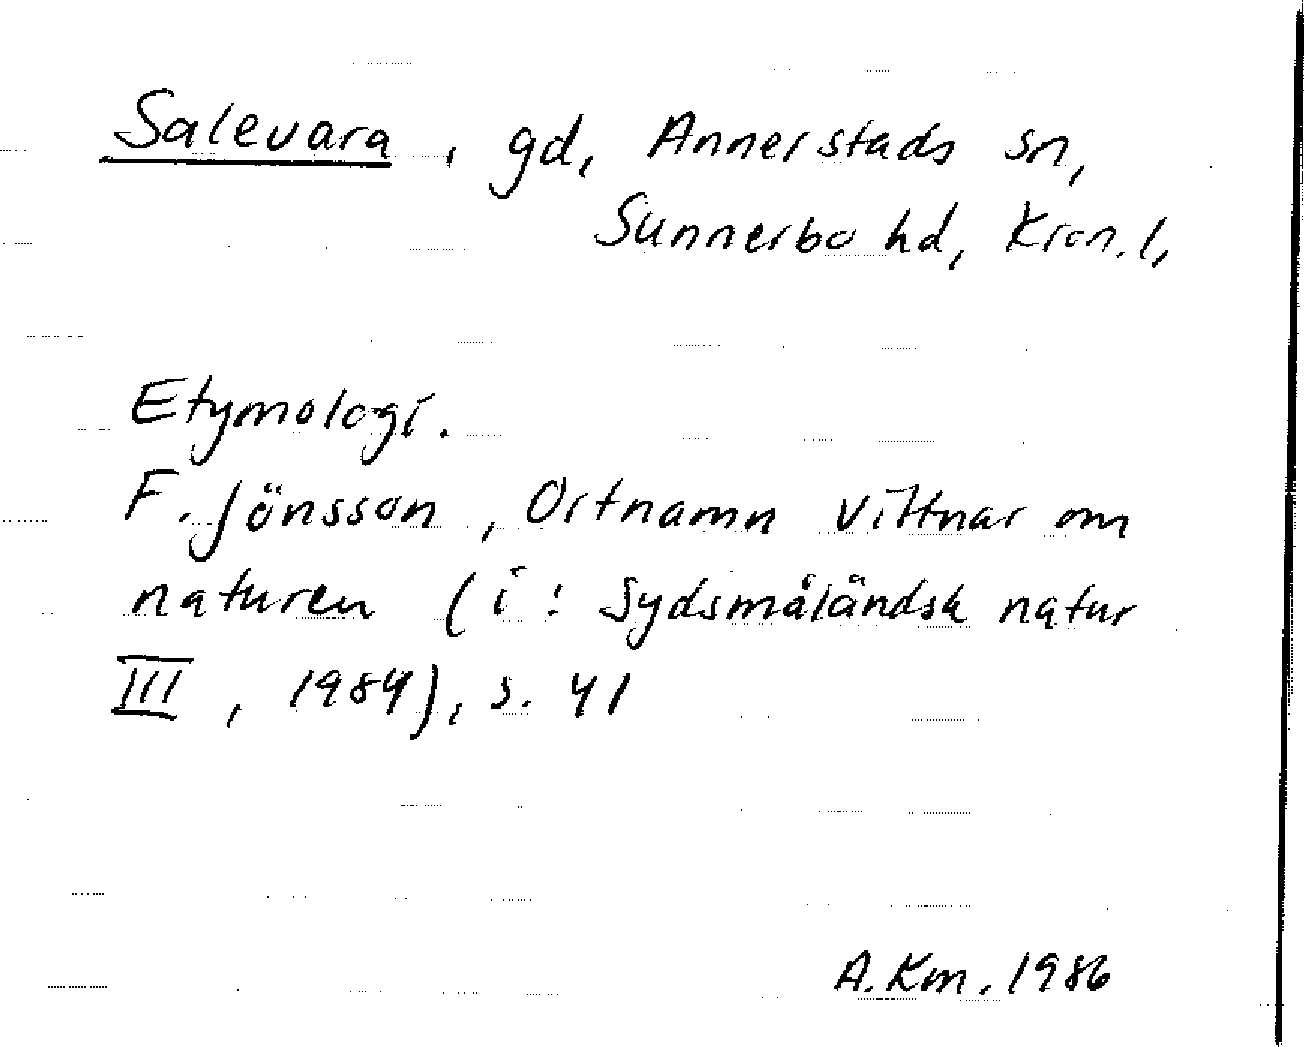 Salevara, gd, Annerstads sn,
Sunnerbo hd, Kron. l,
Etymologi.
F. Jönsson, Ortnamn vittnar om
naturen (i: Sydsmåländsk natur
III, 1984), s. 41
A.Km. 1986